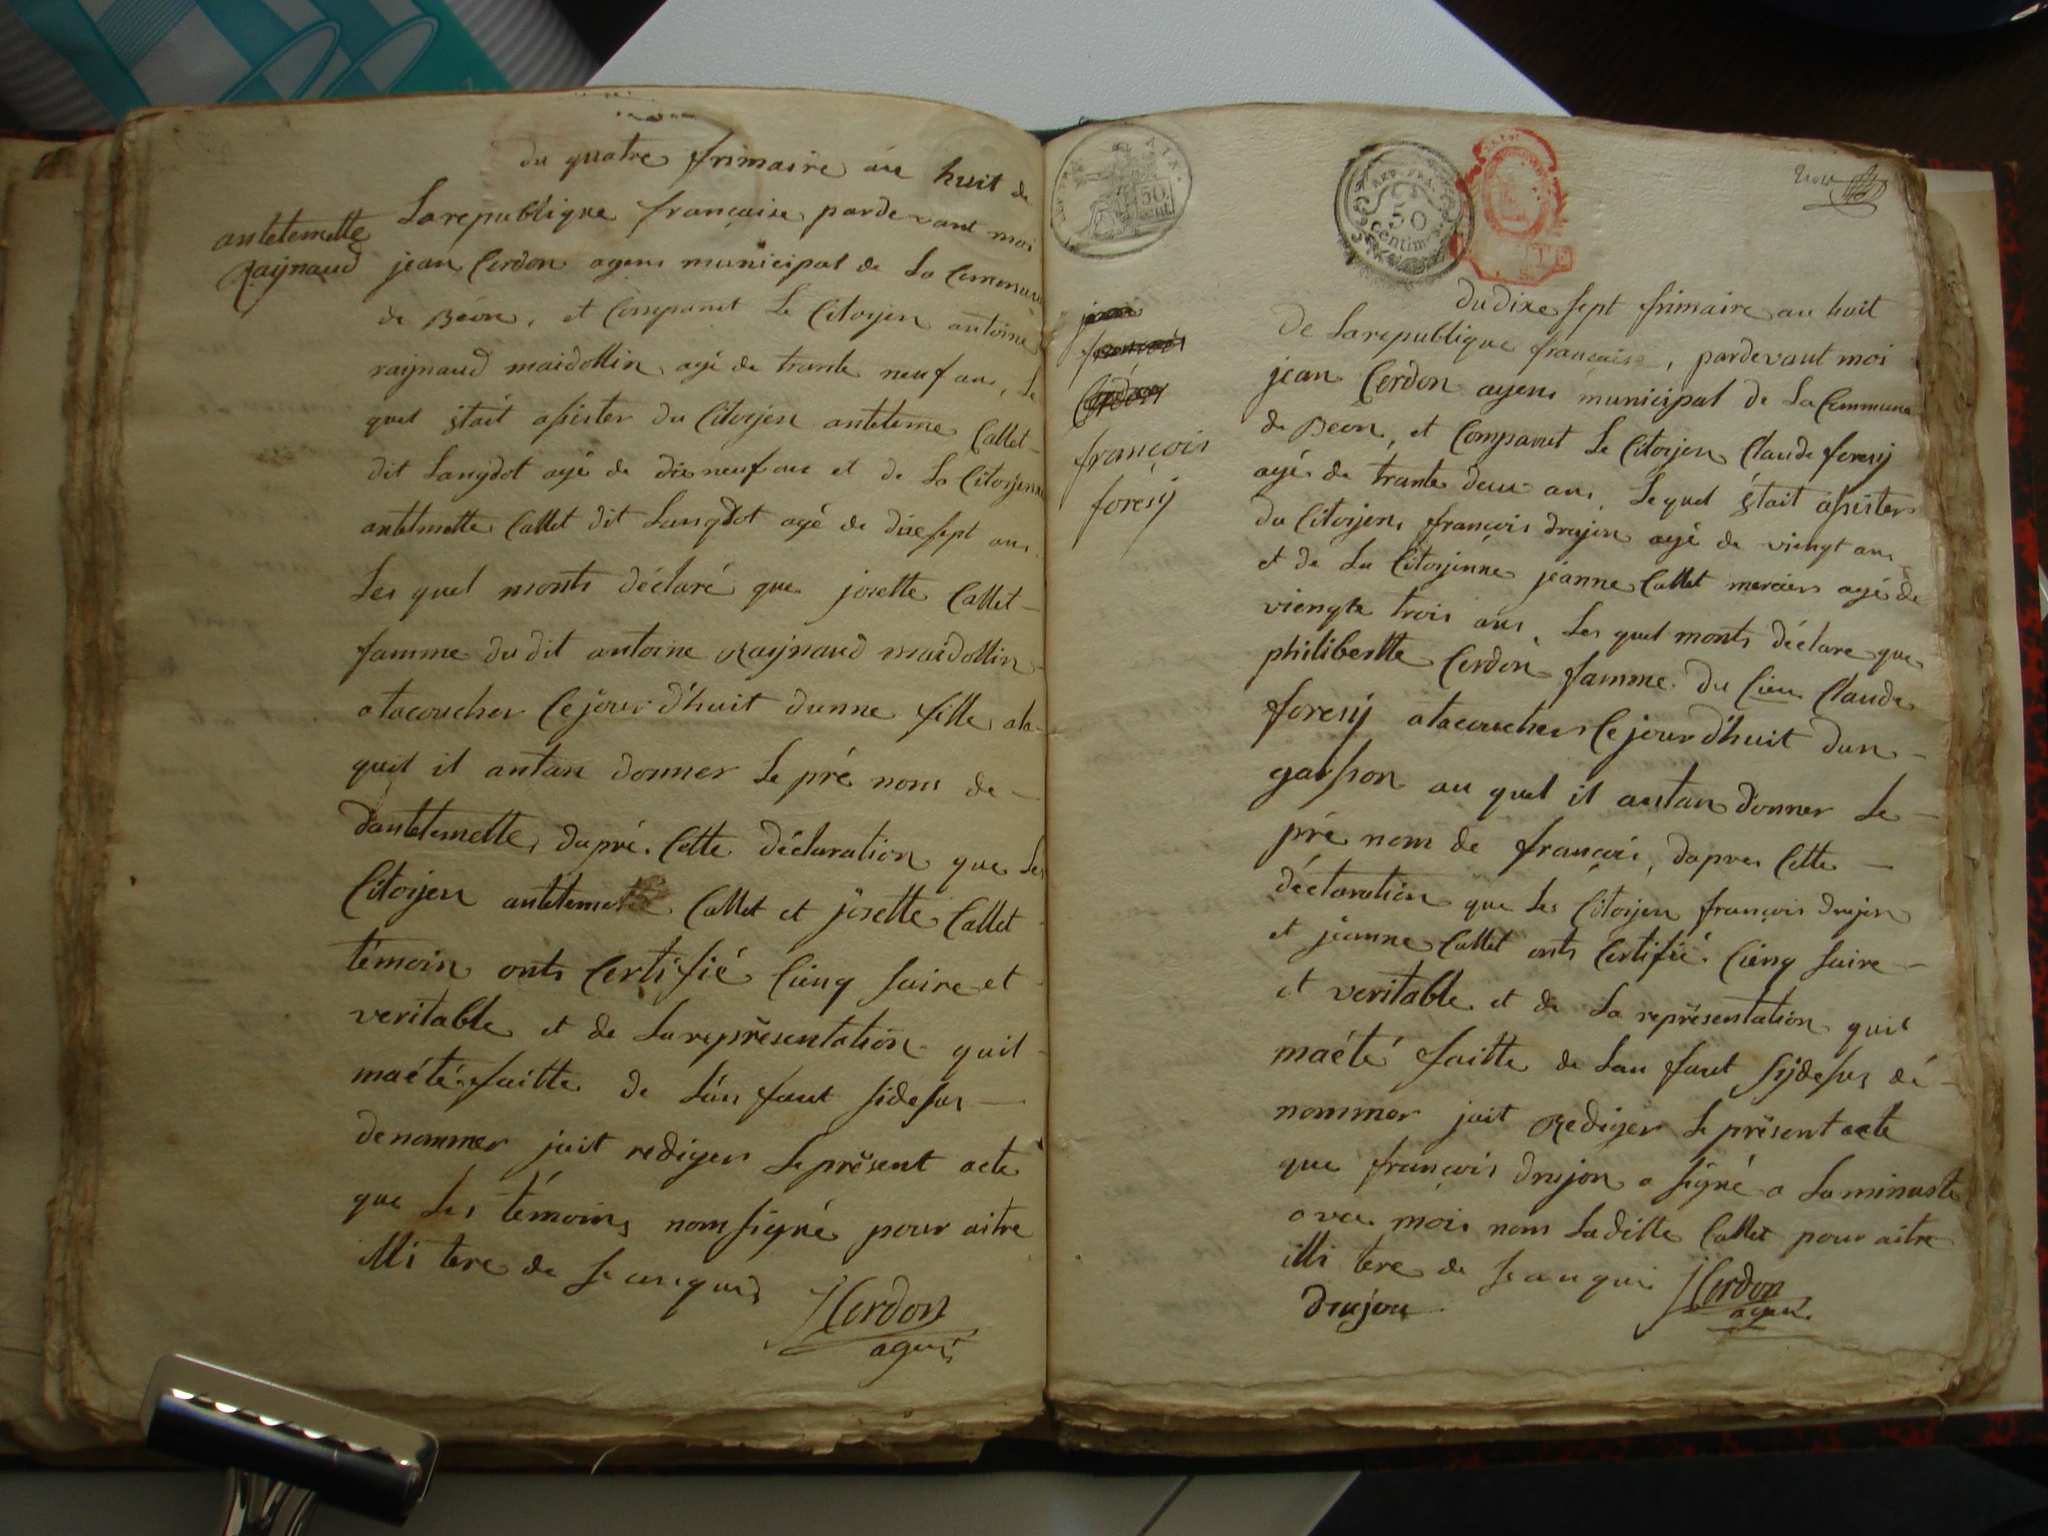 du quatre frimaire an huit de
La republique française pardevant moi
antelmette
Raynaud
jean Cerdon agens municipal de La Commune
de Béon, et Comparut Le Citoyen antoine
raynaud maidollin agé de trante neuf ans, Le
quel Etait asister du Citoyen anteleme Callet
dit Langdot agé de dixneuf ans et de La Citoyenne
antelmette Callet dit Langdot agé de dixesept ans
Les quel monts déclaré que josette Callet
famme du dit antoine Raynaud maidollin
atacoucher Cejour d'huit dunne fille ala
quel il antan donner Le pré nom de
dantelemette, dapré Cette déclaration que Les
Citoyen Callet et josette Callet
témoin onts Certifié Cienq saire et
veritable et de La représentation quil
maété faitte de Lan fant sidesus
denommer jait rediger Le présent acte
que Les témoins nom signé pour aitre
illi tere de se anquis
JCerdon
agens
AIN
50
cent
REP. FRA.
50
centimes
jean
françois
Cerdon
françois
foresÿ
du dixe sept frimaire an huit
de La republique française, pardevant moi
jean Cerdon agens municipal de La Commune
de Béon, et Comparut Le Citoyen Claude foresÿ
agé de trante deux ans, Le quel Etait asister
du Citoyen françois drujon agé de viengt ans
et de La Citoyenne jéanne Callet mercier agé de
viengte trois ans, Les quel monts déclare que
philibertte Cerdon famme du Cien Claude
foresÿ atacoucher Cejour d'huit dun
garson au quel il antan donner Le
pré nom de françois, dapres Cette
déclaration que Les Citoyen françois drujon
et jeanne Callet onts Certifié Cienq saire
et veritable et de La représentation quil
maété faitte de Lan fant sÿdesus dé
nommer jait Rediger Le présent acte
que françois drujon a signé a La minuste
avec moi nom Laditte Callet pour aitre
illi tere de se anquis
JCerdon
agens
drujon